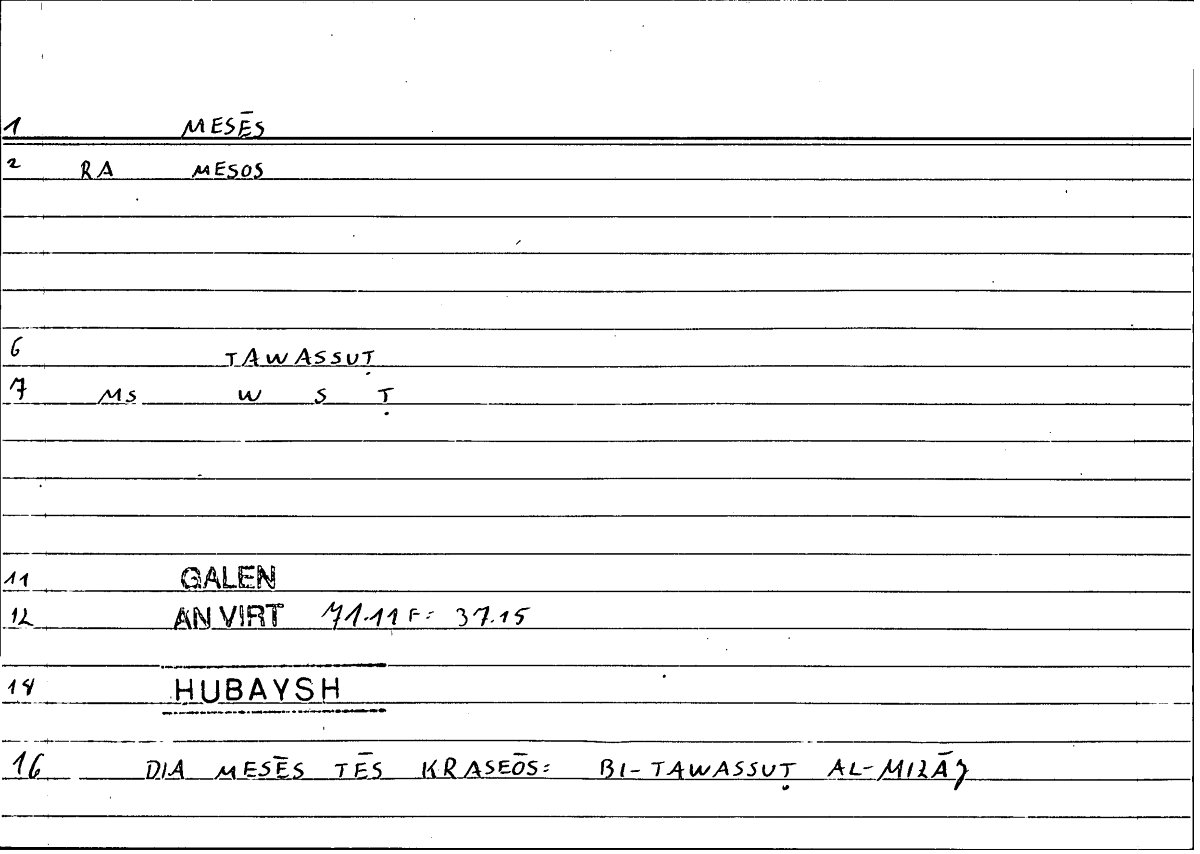 1 MESĒS
2 RA MESOS
6 TAWASSUṬ
7 Ms W S Ṭ
11 GALEN
12 AN VIRT 71.11 F: 37.15
14 HUBAYSH
16 DIA MESĒS TĒS KRASEŌS: BI-TAWASSUṬ AL-MIZĀJ